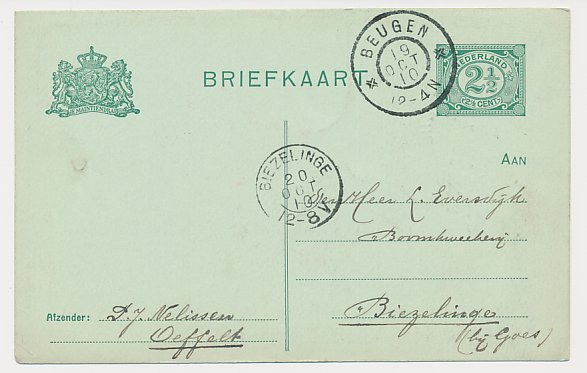 JE MAINTIENDRAI
BRIEFKAART
BEUGEN
19
OCT
10
12-4N
NEDERLAND
2½
2½ CENT
BIEZELINGE
20
OCT
10
12-8V
AAN
Den Heer L. Eversdijk
Boomkweekerij
Biezelinge
(bij Goes)
Afzender: P.J. Nelissen
Oeffelt